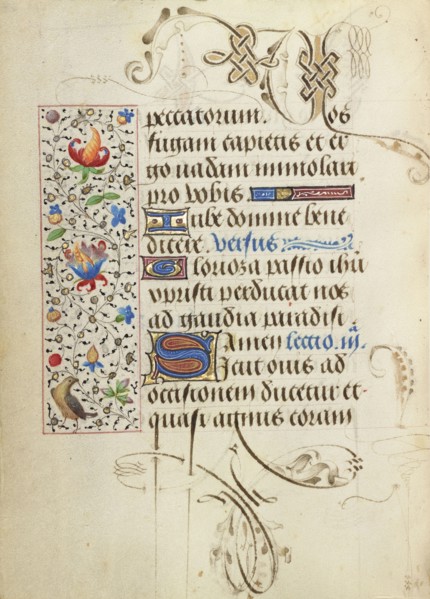 peccatorum. Vos
fugam capietis et e
go uadam immolari
pro vobis.
Iube domine bene
dicere. Versus
Gloriosa passio ihu
xpristi perducat nos
ad gaudia paradisi.
Amen lectio .iii.
Sicut ouis ad
occasionem ducetur et
quasi agnus coram